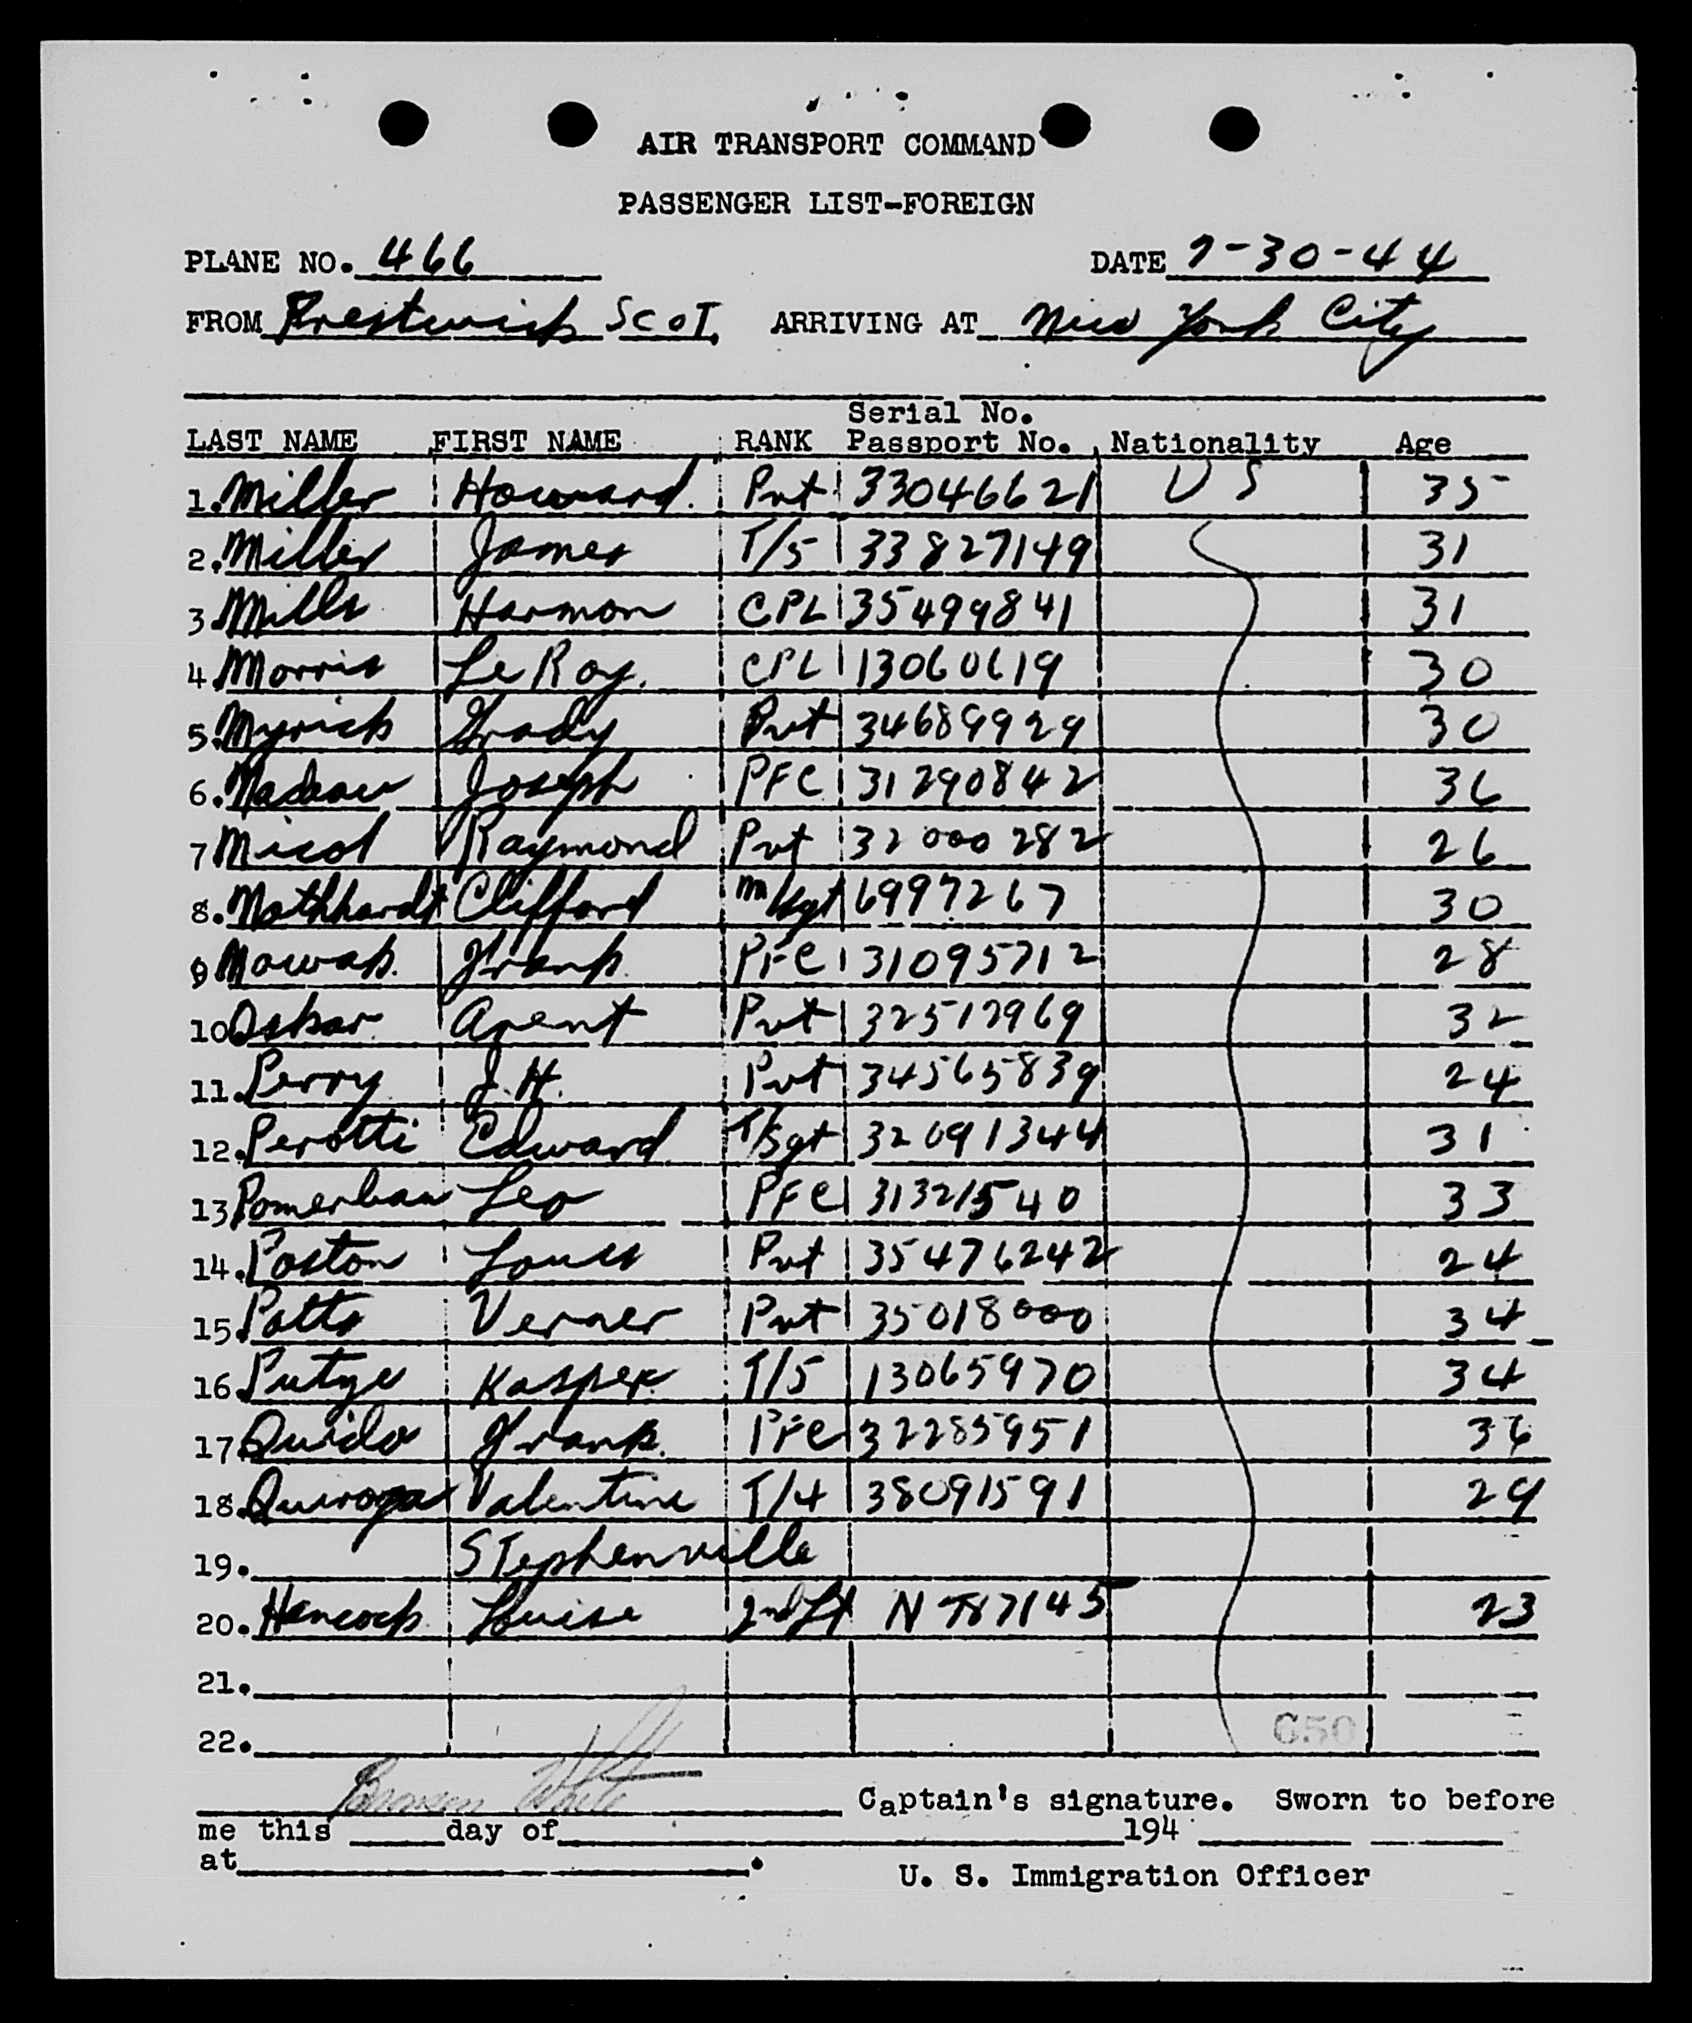 AIR TRANSPORT COMMAND
PASSENGER LIST-FOREIGN
PLANE NO. 466 DATE 7-30-44
FROM Prestwick SCOT. ARRIVING AT New York City
Serial No.
LAST NAME FIRST NAME RANK Passport No. Nationality Age
1. Miller Howard Pvt 33046621 U S 35
2. Miller James T/5 33827149 31
3 Mills Harmon CPL 35499841 31
4. Morris Le Roy. CPL 13060619 30
5. Myrick Grady Pvt 34689929 30
6. Joseph PFC 31290842 36
7 Raymond Pvt 32000282 26
8. Clifford M/Sgt 6997267 30
9 Nowak Frank PFC 31095712 28
10 Oskar Arent Pvt 32517969 32
11. Perry J.H. Pvt 34565839 24
12. Perotti Edward T/Sgt 32091344 31
13 Leo PFC 31321540 33
14. Poston Louis Pvt 35476242 24
15 Potts Verner Pvt 35018000 34
16 Kasper T/5 13065970 34
17 Quido Frank PFC 32285951 36
18. Quiroga Valentine T/4 38091591 29
19. STephenville
20. Hancock Louise 2nd Lt N 787145 23
21.
22. 650
White Captain's signature. Sworn to before
me this day of 194
at .
U. S. Immigration Officer